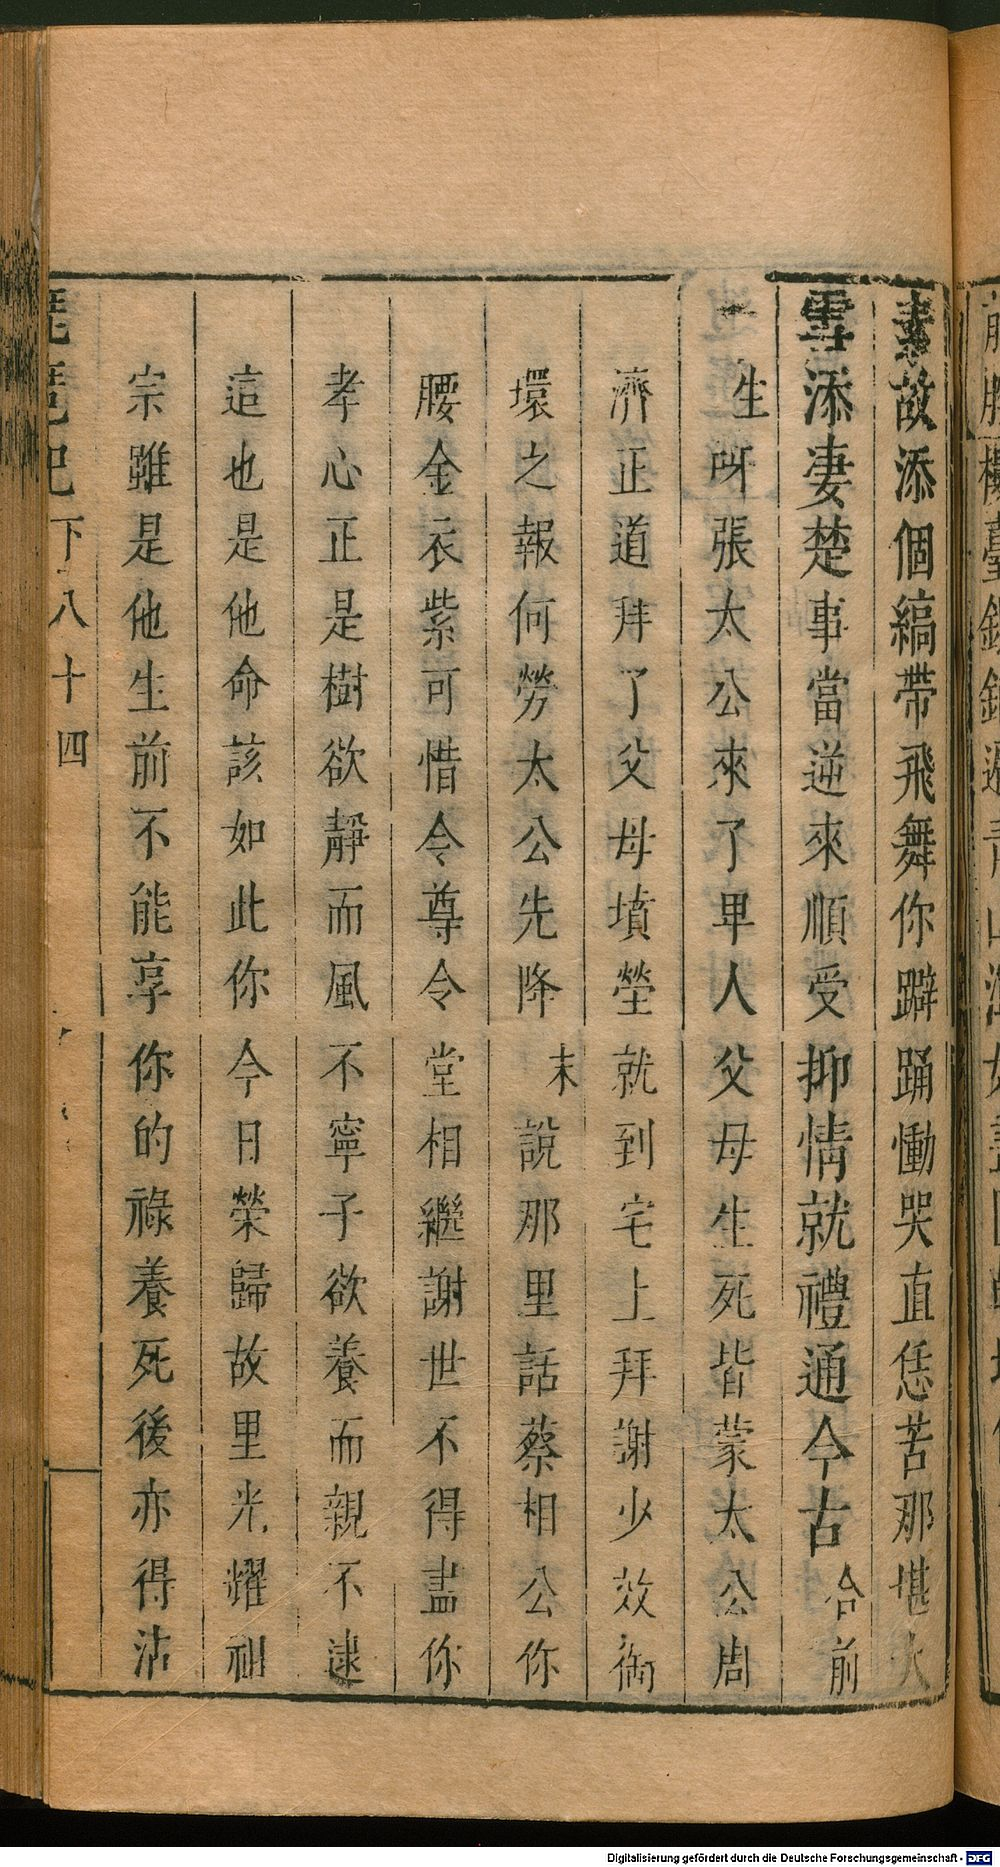 素故添個縞帶飛舞你躃踊慟哭直恁苦那堪大
雪添凄楚事當逆來順受抑情就禮通今古合前
生呀張太公來了卑人父母生死皆蒙太公周
濟正道拜了父母墳塋就到宅上拜謝少效銜
環之報何勞太公先降末說那里話蔡相公你
腰金衣紫可惜令尊令堂相繼謝世不得盡你
孝心正是樹欲靜而風不寧子欲養而親不逮
這也是他命該如此你今日榮歸故里光耀祖
宗雖是他生前不能享你的祿養死後亦得沾
琵琶記下八十四
Digitalisierung gefördert durch die Deutsche Forschungsgemeinschaft - DFG